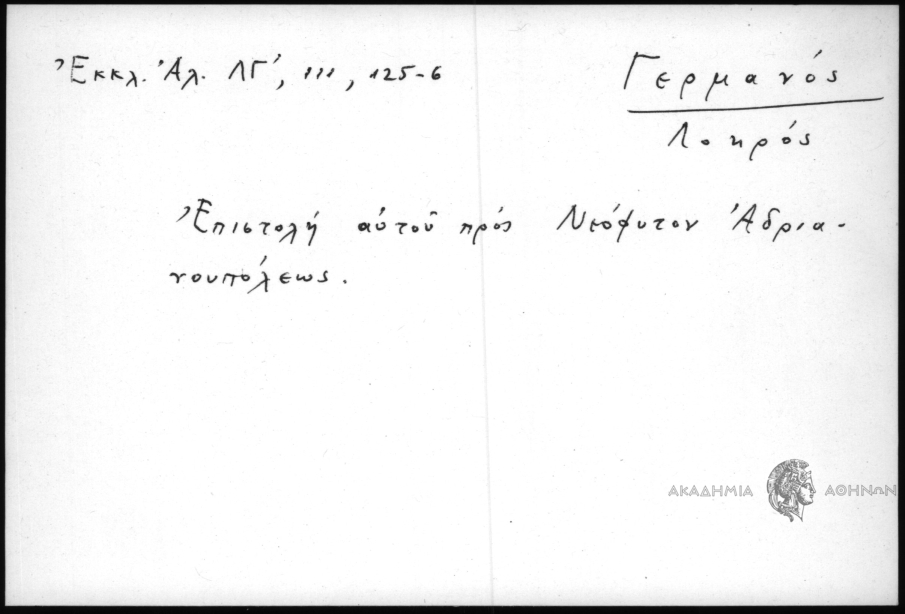 Ἐκκλ. Ἀλ. ΛΓ', 111, 125-6
Γερμανός
Λοκρός
Ἐπιστολή αὐτοῦ πρός Νεόφυτον Ἀδρια-
νουπόλεως.
ΑΚΑΔΗΜΙΑ ΑΘΗΝΩΝ